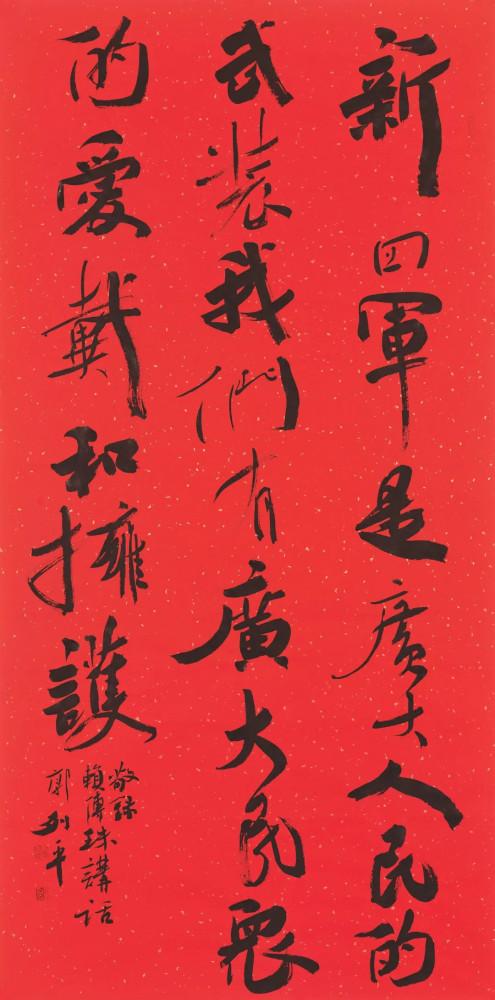 新四軍是廣大人民的
武装我們有廣大民眾
的愛戴和擁護
敬録
賴傳珠講话
郭列平